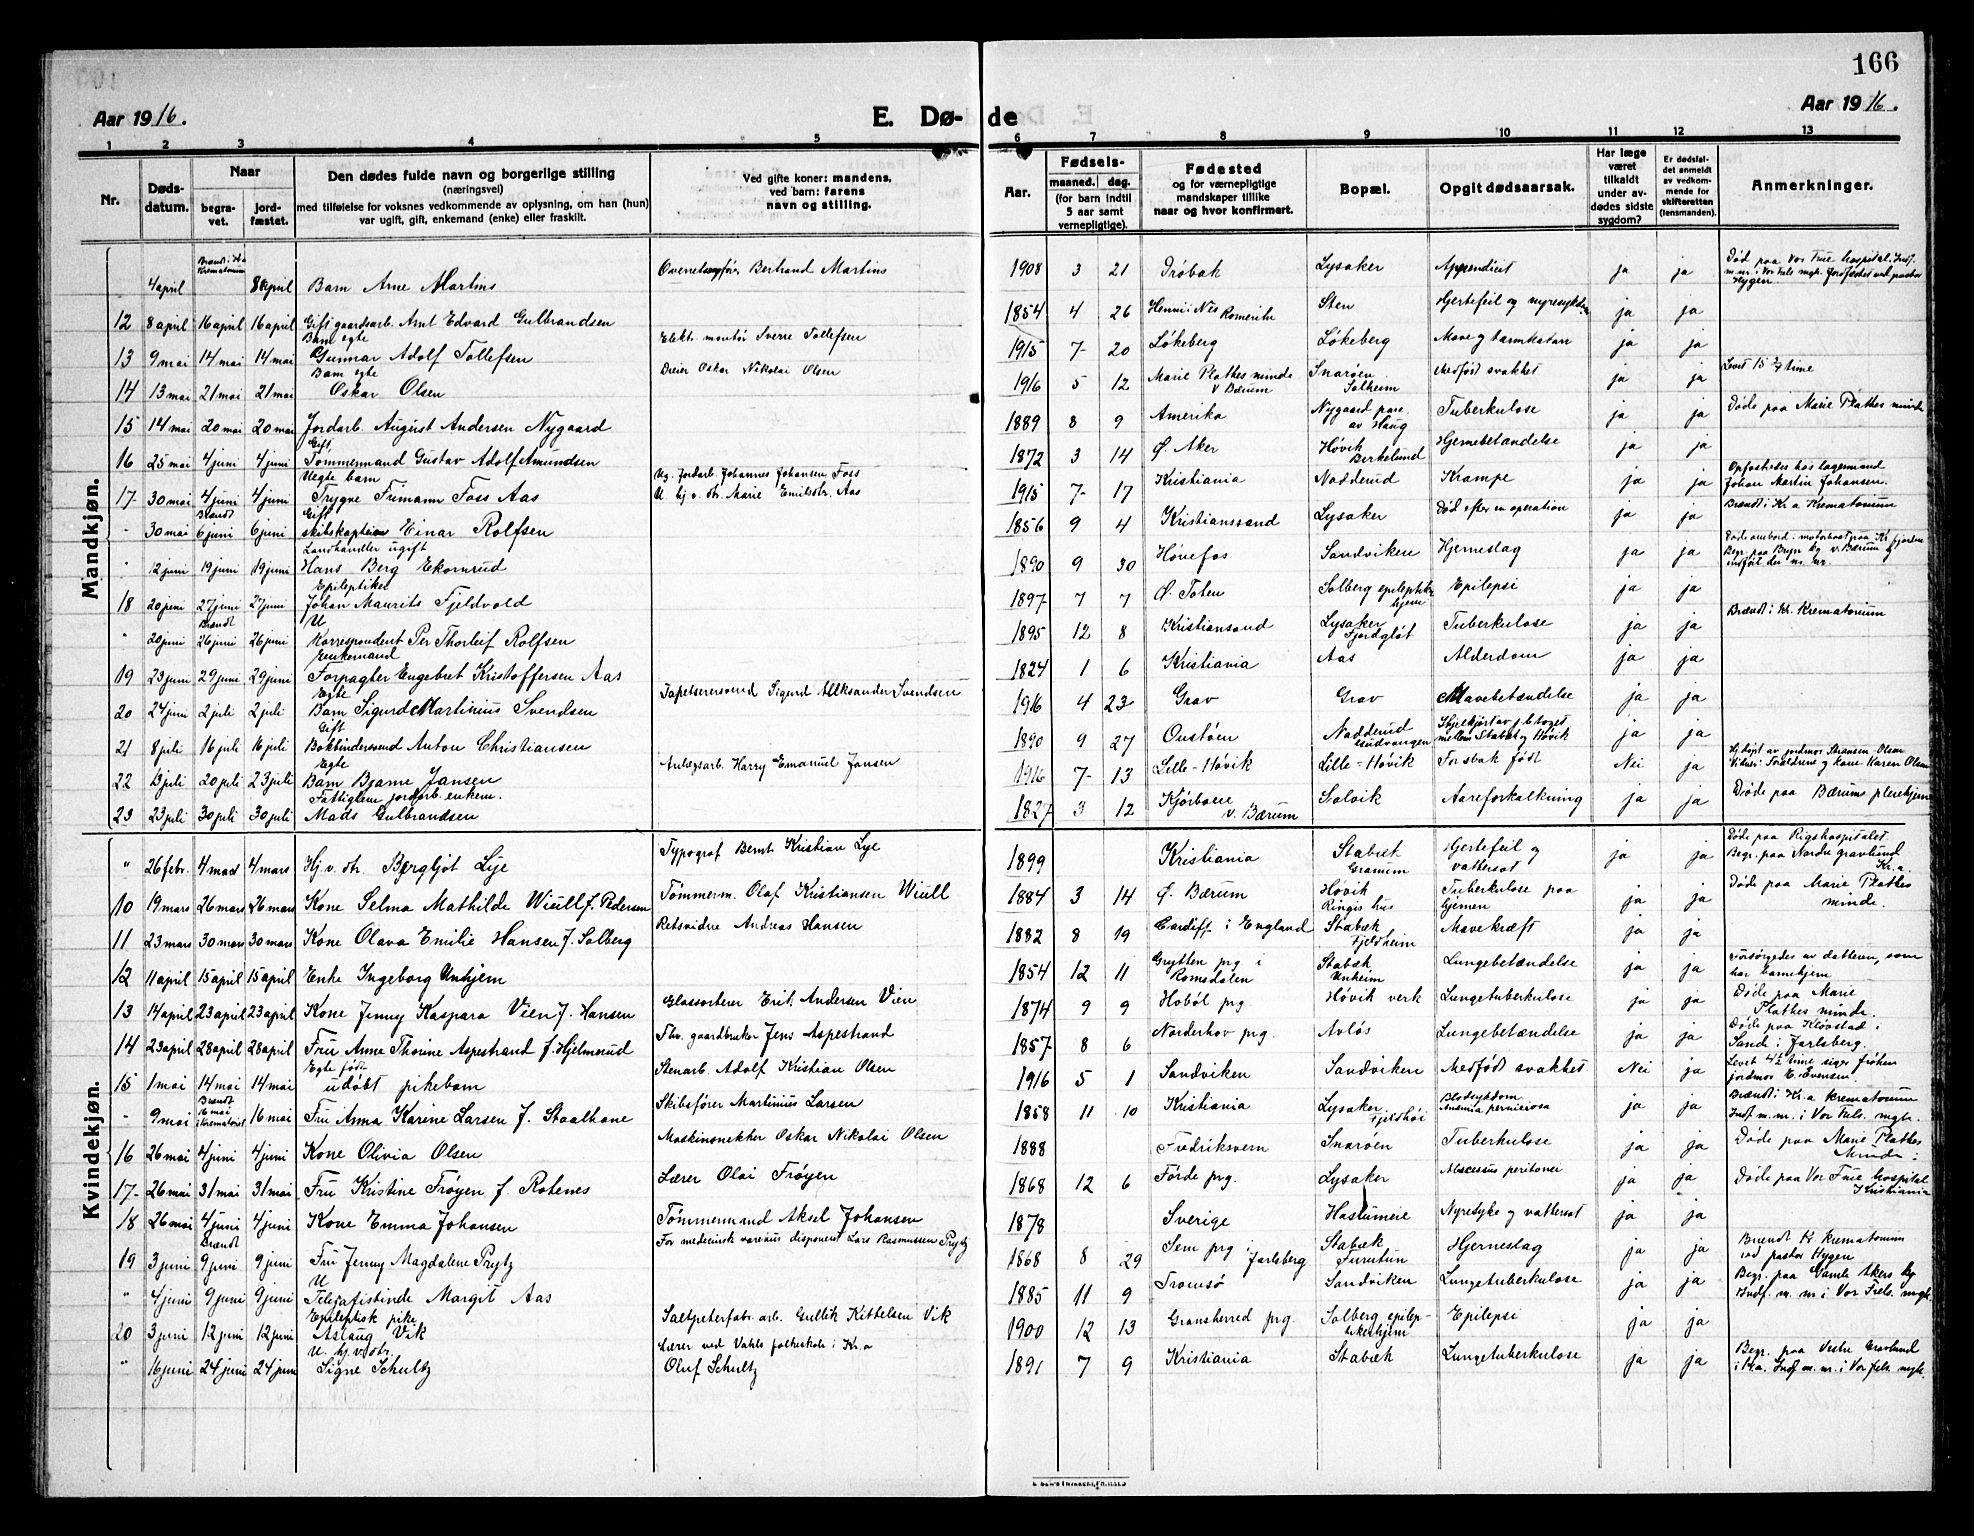 166
Aar 1916.
E. Dø-de
Aar 1916.
1 2 3 4 5 6 7 8 9 10 11 12 13
Nr.
Døds-datum.
Naar
begra-vet.
jord-fæstet.
Den dødes fulde navn og borgerlige stilling
(næringsvei)
med tilføielse for voksnes vedkommende av oplysning, om han (hun)
var ugift, gift, enkemand (enke) eller fraskilt.
Ved gifte koner: mandens,
ved barn: farens
navn og stilling.
Aar.
Fødsels-
maaned. dag.
(for barn indtil
5 aar samt
vernepligtige).
Fødested
og for værnepligtige
mandskaper tillike
naar og hvor konfirmert.
Bopæl.
Opgit dødsaarsak.
Har læge
været
tilkaldt
under av-
dødes sidste
sygdom?
Er dødsfal-
det anmeldt
av vedkom-
mende for
skifteretten
(lensmanden).
Anmerkninger.
Mandkjøn.
4 april Brændt i Kr.a Krematorium 8 april Barn Arne Martins Overretssagfører Bertrand Martins 1908 3 21 Drøbak Lysaker Appendicit ja ja Død paa Vor Frue hospital. Indf. m. nr. i Vor Frels. mgh. Jordfæstet ved pastor Hygen
12 8 april 16 april 16 april Gift gaardsarb. Arnt Edvard Gulbrandsen 1854 4 26 Henni i Nes Romerike Sten Hjertefeil og nyresykdom ja ja
13 9 mai 14 mai 14 mai Barn egte Gunnar Adolf Tollefsen Elektr. montør Sverre Tollefsen 1915 7 20 Løkeberg Løkeberg Mave og tarmkatarr ja ja
14 13 mai 21 mai 21 mai Barn egte Oskar Olsen Dreier Oskar Nikolai Olsen 1916 5 12 Marie Plathes minde v Bærum Snarøen Solheim Medfød svakhet ja ja Levet 15 time
15 14 mai 20 mai 20 mai Jordarb. August Andersen Nygaard 1889 8 9 Amerika Nygaard av Haug Tuberkulose ja ja Døde paa Marie Plathes minde
16 25 mai 4 juni 4 juni Gift Tømmermand Gustav Adolf Amundsen 1872 3 14 Ø. Aker Høvik Birkelund Hjernebetændelse ja ja
17 30 mai 4 juni 4 juni Uegte barn Trygve Fumann Foss Aas Ug. jordarb. Johannes Johansen Foss U. hj. v. dtr. Marie Emilsdtr. Aas 1915 7 17 Kristiania Nadderud Krampe ja ja Opfostedes hos lagermand Johan Martin Johansen.
" 30 mai Brændt 6 juni 6 juni Gift skibskaptein Einar Rolfsen 1856 9 4 Kristianssand Lysaker Død efter en operation ja ja Brændt i Kr.a Krematorium
" 12 juni 19 juni 19 juni Landhandler ugift Hans Berg Ekornrud 1890 9 30 Hønefos Sandviken Hjerneslag ja ja Døde ombord i motorbaat paa Kr.fjorden Begr. paa Bryn kg v. Bærum og indført der m. nr.
18 20 juni 27 juni 27 juni Epileptiker Johan Maurits Fjeldvold 1897 7 7 Ø. Toten Solberg epileptikerhjem Epilepsi ja ja
" 20 juni Brændt 26 juni 26 juni U Korrespondent Per Thorleif Rolfsen 1895 12 8 Kristiansand Lysaker Fjordgløt Tuberkulose ja ja Brændt i Kr. Krematorium
19 23 juni 29 juni 29 juni Enkemand Forpagter Engebret Kristoffersen Aas 1824 1 6 Kristiania Aas Alderdom ja ja
20 24 juni 2 juli 2 juli Egte Barn Sigurd Martinius Svendsen Tapetserersvend Sigurd Alleksander Svendsen 1916 4 23 Grav Grav Mavebetændelse ja ja
21 8 juli 16 juli 16 juli Gift Bokbindersvend Anton Christiansen 1890 9 27 Onstøen Nadderud Ihjelkjørt av jb toget mellem Stabæk og Høvik ja ja
22 13 juli 20 juli 23 juli Egte Barn Bjarne Jansen Anlægsarb. Harry Emanuel Jansen 1916 7 13 Lille-Høvik Lille-Høvik For svak født Nei ja Hj.døpt av jordmor Olsen Vidner: Forældrene og kone Karen Olsen
23 23 juli 30 juli 30 juli Fattiglem jordarb. enkem. Mads Gulbrandsen 1827 3 12 Kjørboere v. Bærum Solvik Aareforkalkning ja ja Døde paa Bærums pleiehjem
Kvindekjøn.
" 26 febr. 4 mars 4 mars Hj. v. dtr. Bergljot Lye Typograf Bernt Kristian Lye 1899 Kristiania Stabæk Granum Hjertefeil og vattersot ja ja Døde paa Rigshospitalet. Begr. paa Nordre gravlund Kr.a.
10 19 mars 26 mars 26 mars Kone Selma Mathilde Wiull f. Pedersen Tømmerm. Olaf Kristiansen Wiull 1884 3 14 Ø. Bærum Høvik Ringis hus Tuberkulose paa hjernen ja ja Døde paa Marie Plathes minde.
11 23 mars 30 mars 30 mars Kone Olava Emilie Hansen f. Solberg Retsvidne Andreas Hansen 1882 8 19 Cardiff i England Stabæk Fjeldheim Mavekræft ja ja
12 11 april 15 april 15 april Enke Ingeborg Unhjem 1854 12 11 Grytten prg i Romsdalen Stabæk Unheim Lungebetændelse ja ja Forsørgedes av datteren, som har barnehjem
13 14 april 23 april 23 april Kone Jenny Kaspara Vien f. Hansen Glassorterer Erik Andersen Vien 1874 9 9 Hobøl prg. Høvik verk Lungetuberkulose ja ja Døde paa Marie Plathes minde.
14 23 april 28 april 28 april Fru Anne Thorine Aspestrand f. Hjelmerud Fhv. gaardbruker Jens Aspestrand 1857 8 6 Norderhov prg Avløs Lungebetændelse ja ja Døde paa Kløvstad i Sande i Jarlsberg.
15 1 mai 14 mai 14 mai Egte født udøbt pikebarn Stenarb. Adolf Kristian Olsen 1916 5 1 Sandviken Sandviken Medfød svakhet Nei ja Levet 4½ time siger frøken jordmor E. Evensen.
" 9 mai Brændt 16 mai i krematoriet 16 mai Fru Anna Karine Larsen f. Staalhane Skibsfører Martinius Larsen 1858 11 10 Kristiania Lysaker Fjeldhøi Blodsykdom Anæmia perniciosa ja ja Brændt i Kr.a krematorium Indf. m. nr. i Vor Frels. mgh.
16 26 mai 4 juni 4 juni Kone Olivia Olsen Maskinsnekker Oskar Nikolai Olsen 1888 Fredriksvern Snarøen Tuberkulose ja ja Døde paa Marie Plathes Minde.
17 26 mai 31 mai 31 mai Fru Kristine Frøyen f. Rotenes Lærer Olai Frøyen 1868 12 6 Førde prg. Lysaker Abscessus peritonei ja ja Døde paa Vor Frue hospital Kristiania
18 26 mai 4 juni 4 juni Kone Emma Johansen Tømmermand Aksel Johansen 1878 Sverige Haslumeie Nyresyke og vattersot ja ja
19 3 juni Brændt 9 juni 9 juni Fru Jenny Magdalene Prytz For medicinsk vareaus disponent Lars Rasmussen Prytz 1868 8 29 Sem prg i Jarlsberg Stabæk Furutun Hjerneslag ja ja Brændt Kr. Krematorium ved pastor Hygen
" 4 juni 9 juni 9 juni U Telegrafistinde Margit Aas 1885 11 9 Tromsø Sandviken Lungetuberkulose ja ja Begr. paa Gamle Akers kg Indf. m. nr i Vor Frels. mgh.
20 3 juni 12 juni 12 juni Epileptisk pike Aslaug Vik Salpeterfabr. arb. Gullik Kittelsen Vik 1900 12 13 Gransherred prg. Solberg epilep-tikerhjem Epilepsi ja ja
" 16 juni 24 juni 24 juni U. hj. v. dtr. Signe Schultz Lærer ved Vahls folkeskole i Kr.a Oluf Schultz 1891 7 9 Kristiania Stabæk Lungetuberkulose ja ja Begr. paa Vestre Gravlund i Kr.a. Indf. m. nr. i Vor frels. mgh.